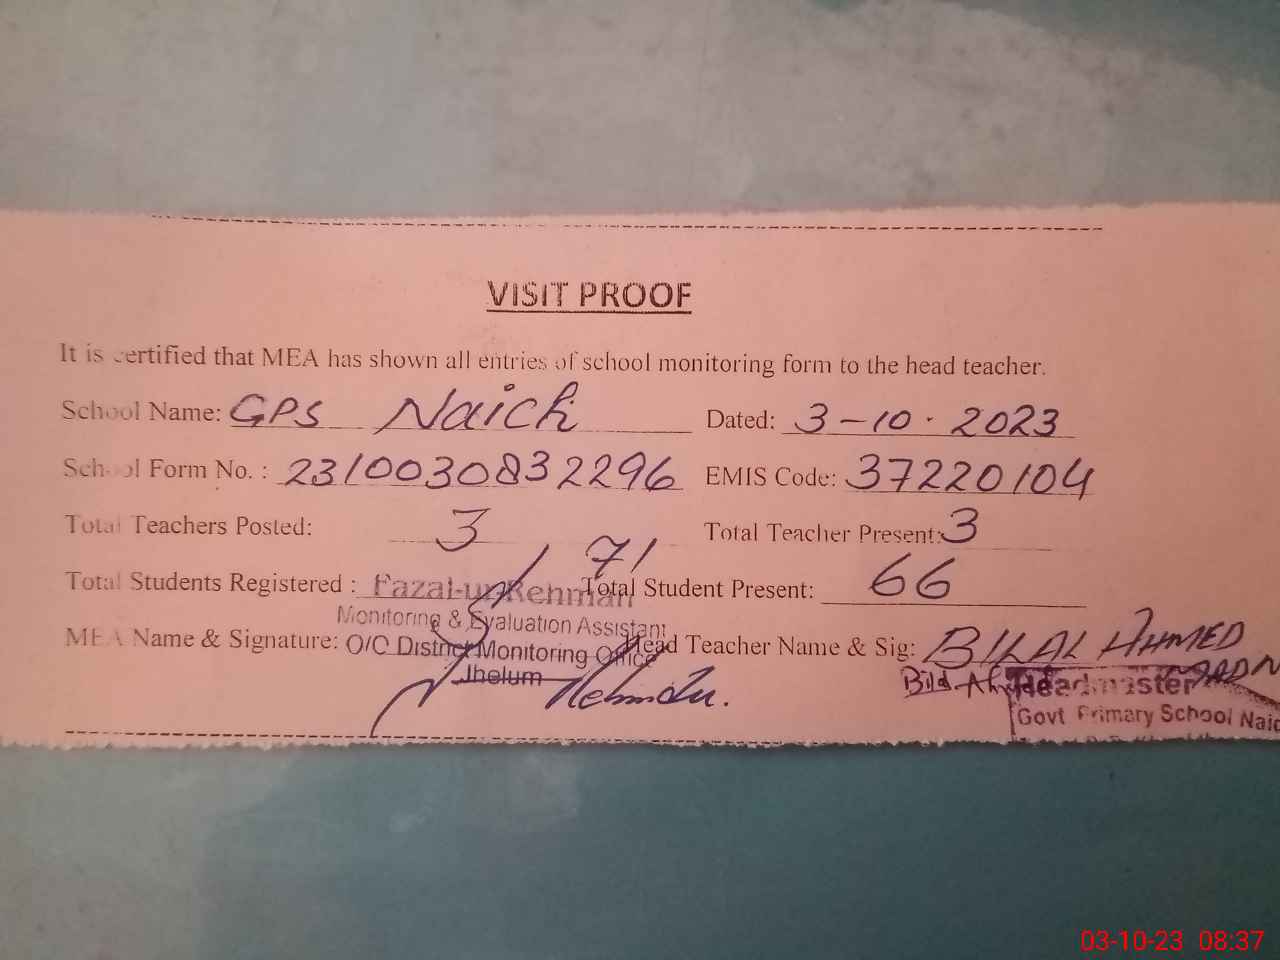 VISIT PROOF
It is certified that MEA has shown all entries of school monitoring form to the head teacher.
School Name: GPS Naich Dated: 3-10-2023
School Form No. : 2310030832296 EMIS Code: 37220104
Total Teachers Posted: 3 Total Teacher Present: 3
Total Students Registered : 71 Total Student Present: 66
Fazal-ur-Rehman
Monitoring & Evaluation Assistant
MEA Name & Signature: O/O District Monitoring Office Head Teacher Name & Sig: BILAL AHMED
Jhelum
Headmaster
Govt Primary School Naic
03-10-23 08:37